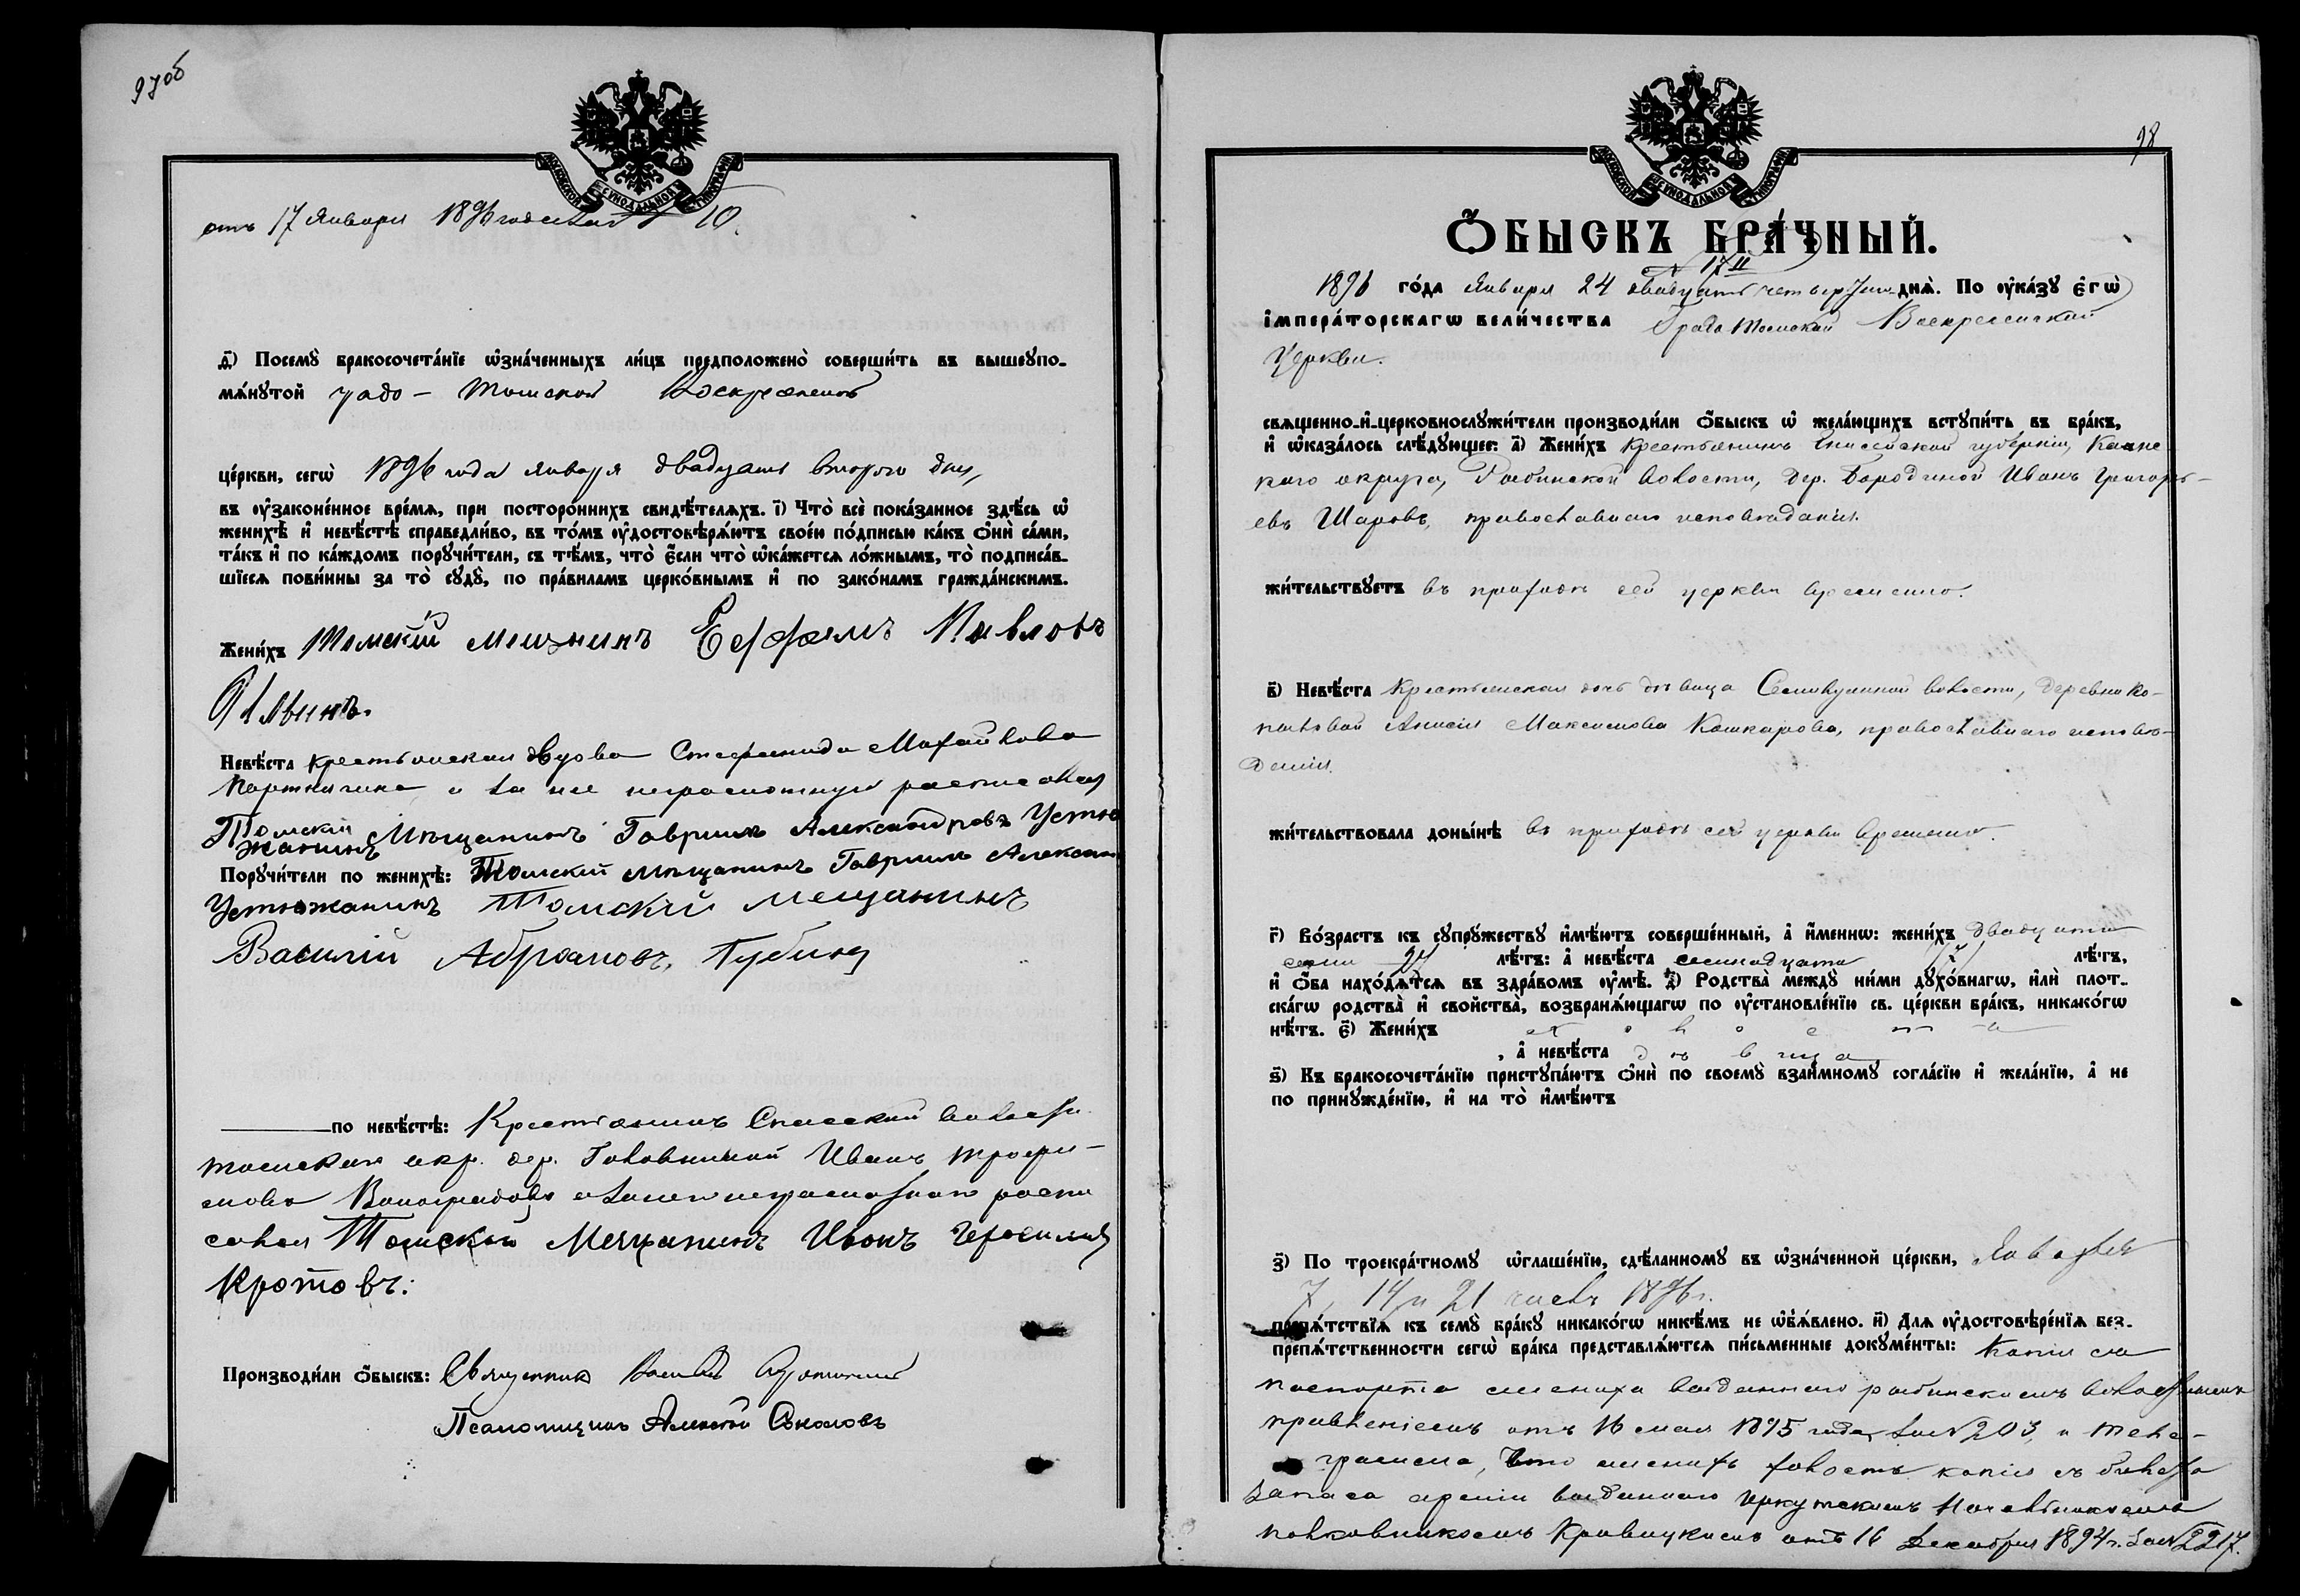 97об
МОСКОВСКОЙ СѴНОДАЛЬНОЙ ТИПОГРАФІИ
отъ 17 Января 1896 года за № 10.
д҃і) Посемꙋ̀ бракосочета́нїе ѡ҆зна́ченныхъ ли́цъ предположено̀ соверши́ть въ вышеꙋпо-
мѧ́нꙋтой градо - Томской Воскресенской
це́ркви, сегѡ̀ 1896 года января двадцать второго дня,
въ ᲂу҆зако́ненное вре́мѧ, при посторо́ннихъ свидѣ́телѧхъ. і҃) Что̀ всѐ пока́занное здѣ́сь ѡ҆
женихѣ̀ и҆ невѣ́стѣ справедли́во, въ то́мъ ᲂу҆достовѣрѧ́ютъ свое́ю по́дписью ка́къ ѻ҆нѝ са́ми,
та́къ и҆ по ка́ждомъ порꙋчи́тели, съ тѣ́мъ, что̀ є҆́сли что̀ ѡ҆ка́жетсѧ ло́жнымъ, то̀ подписа́в-
шїесѧ пови́нны за то̀ сꙋдꙋ̀, по пра́виламъ церко́внымъ и҆ по зако́намъ гражда́нскимъ.
Жени́хъ Томскій мещнинъ Ефремъ Павловъ
Невѣ́ста крестьянская вдова Стефанида Михайлова
а за нее неграмотную росписался
Томскій Мѣщанинъ Гавриилъ Александровъ Устю
жанинъ
Порꙋчи́тели по женихѣ̀: Томскій мѣщанинъ Гавріилъ Александ
Устюжанинъ Томскій мещанинъ
Василій Абрамовъ Губинъ
по невѣ́стѣ: Крестьянинъ Спасской волости
Томскаго окр. дер. Головниной Иванъ Трофи-
мовъ Виноградовъ а за него неграмотнаго роспи
сался Томскій Мещанинъ Иванъ Герасимовъ
Кротовъ:
Производи́ли ѻ҆́быскъ: Священникъ Василій
Псаломщикъ Алексѣй Соколовъ
98
МОСКОВСКОЙ СѴНОДАЛЬНОЙ ТИПОГРАФІИ
Ѻ҆́БЫСКЪ БРА́ЧНЫЙ.
№ 11
1896 го́да Января 24 двадцать четвертаго днѧ̀. По ᲂу҆ка́зꙋ є҆гѡ̀
і҆мпера́торскагѡ вели́чества Градо Томской Воскресенской
Церкви.
свѧщенно-и҆-церковнослꙋжи́тели производи́ли ѻ҆́быскъ ѡ҆ жела́ющихъ встꙋпи́ть въ бра́къ,
и҆ ѡ҆каза́лось слѣ́дꙋющее: а҃) Жени́хъ Крестьянинъ Енисейской губерніи, Канс
каго округа, Рыбинской волости, дер. Бородиной Иванъ Григорь-
евъ Шаровъ, православнаго исповѣданія.
жи́тельствꙋетъ въ приходѣ сей церкви временно.
в҃) Невѣ́ста Крестьянская дочь дѣвица Семилужной волости, деревни Ко-
пыловой Анисія Максимова Кашкарова, православнаго исповѣ-
данія.
жи́тельствовала донынѣ въ приходѣ сей церкви временно.
г҃) Во́зрастъ къ сꙋпрꙋ́жествꙋ и҆мѣ́ютъ соверше́нный, а҆ и҆́меннѡ: жени́хъ двадцати
семи 27 лѣ́тъ: а҆ невѣ́ста семнадцати 17 лѣ́тъ,
и҆ ѻ҆́ба нахо́дѧтсѧ въ здра́вомъ ᲂу҆мѣ̀. д҃) Родства̀ междꙋ̀ ни́ми дꙋхо́внагѡ, и҆лѝ плот-
ска́гѡ родства̀ и҆ свойства̀, возбранѧ́ющагѡ по ᲂу҆становле́нїю св. це́ркви бра́къ, никако́гѡ
нѣ́тъ. є҃) Жени́хъ холостъ
, а҆ невѣ́ста дѣвица
ѕ҃) Къ бракосочета́нїю пристꙋпа́ютъ ѻ҆нѝ по своемꙋ̀ взаи́мномꙋ согла́сїю и҆ жела́нїю, а҆ не
по принꙋжде́нїю, и҆ на то̀ и҆мѣ́ютъ
з҃) По троекра́тномꙋ ѡ҆глаше́нїю, сдѣ́ланномꙋ въ ѡ҆зна́ченной це́ркви, Января
7, 14 и 21 числъ 1896 г.
препѧ́тствїѧ къ семꙋ̀ бра́кꙋ никако́гѡ никѣ́мъ не ѡ҆б̾ѧ́влено. и҃) Длѧ ᲂу҆достовѣре́нїѧ без-
препѧ́тственности сегѡ̀ бра́ка представлѧ́ютсѧ пи́сьменные докꙋме́нты: Копія съ
паспорта жениха выданнаго рыбинскимъ волостнымъ
правленіемъ отъ 16 мая 1895 года за № 203, и теле-
грамма, что женихъ холостъ, копія съ билета
запаса арміи выданнаго Иркутскимъ Начальникомъ
полковникомъ отъ 16 Декабря 1894 г. за № 2217.